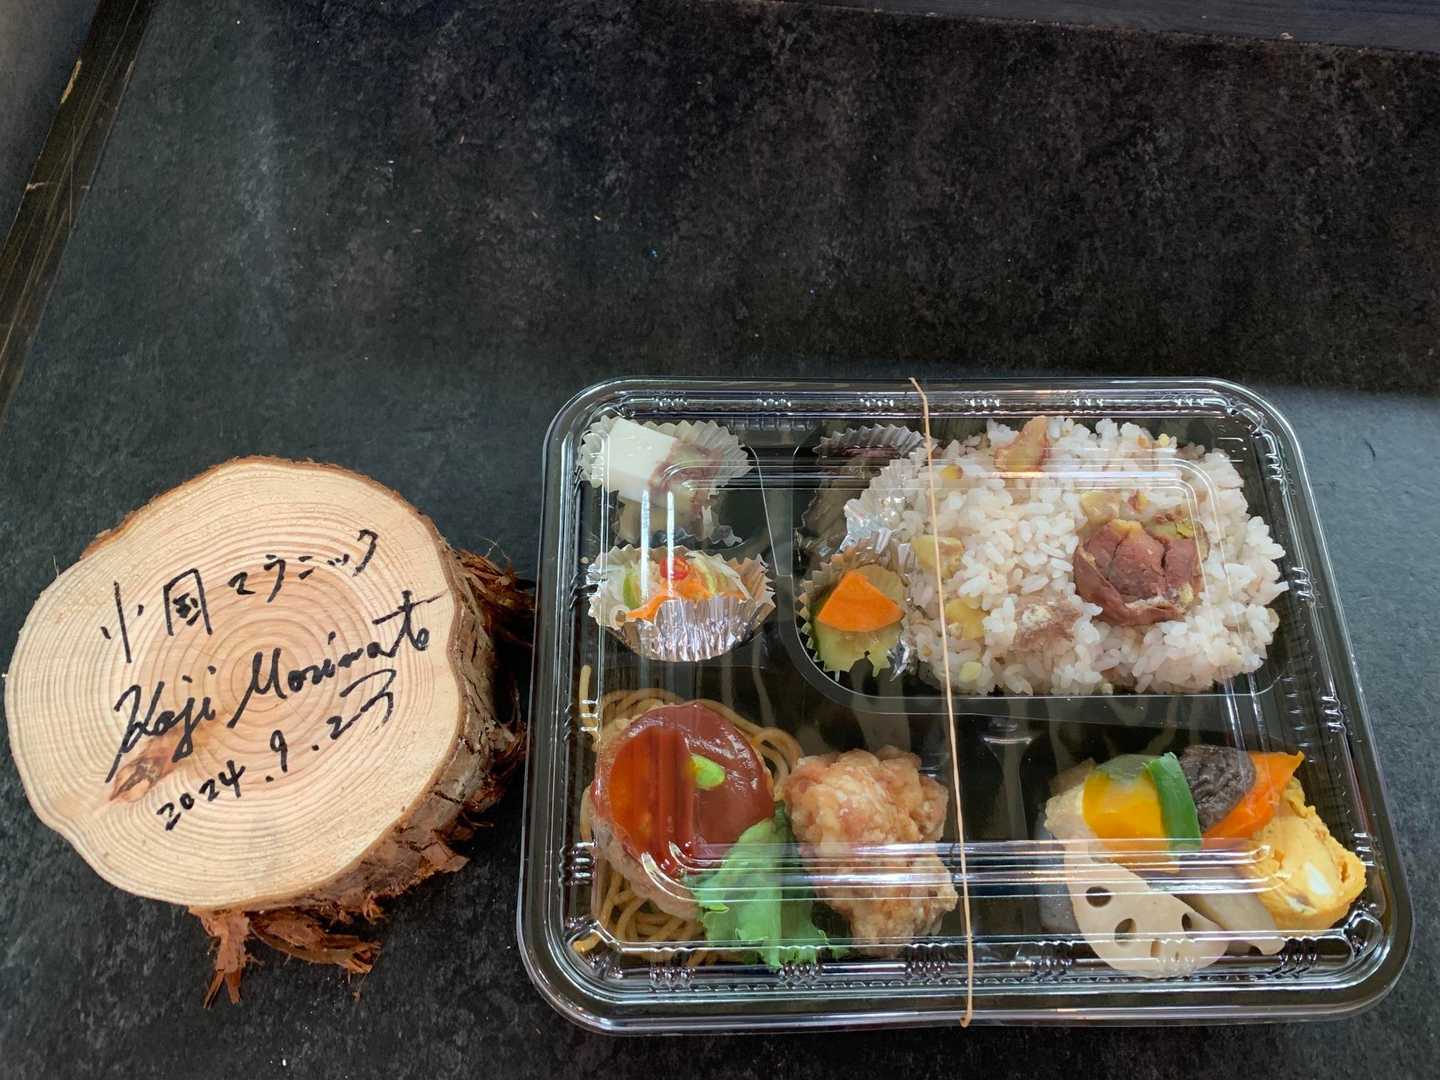 小国マラニック
Koji Morimoto
2024.9.23